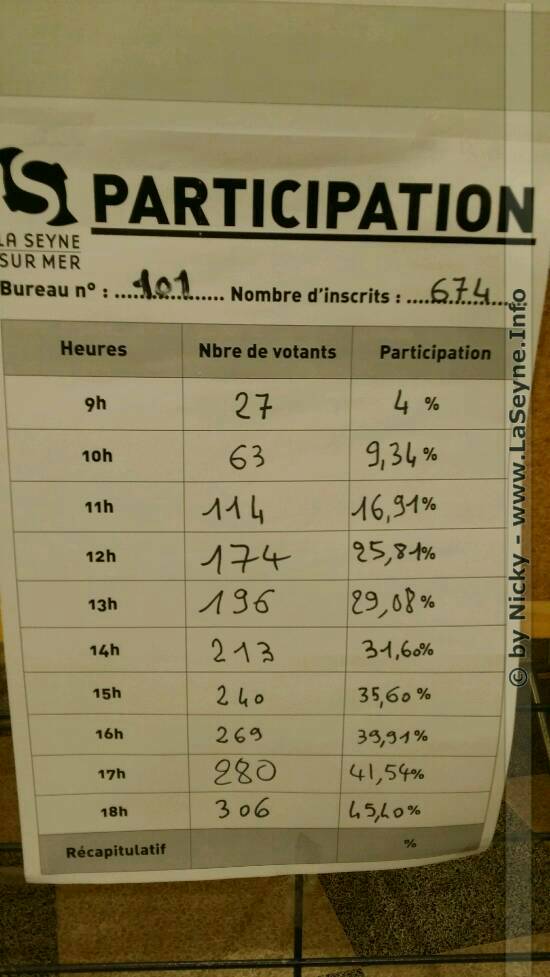 S PARTICIPATION
LA SEYNE
SUR MER
Bureau n° : ....101.... Nombre d'inscrits : ....674....
Heures Nbre de votants Participation
9h 27 4 %
10h 63 9,34 %
11h 114 16,91%
12h 174 25,81%
13h 196 29,08 %
14h 213 31,60%
15h 240 35,60 %
16h 269 39,91%
17h 280 41,54%
18h 306 45,40%
Récapitulatif %
© by Nicky - www.LaSeyne.Info